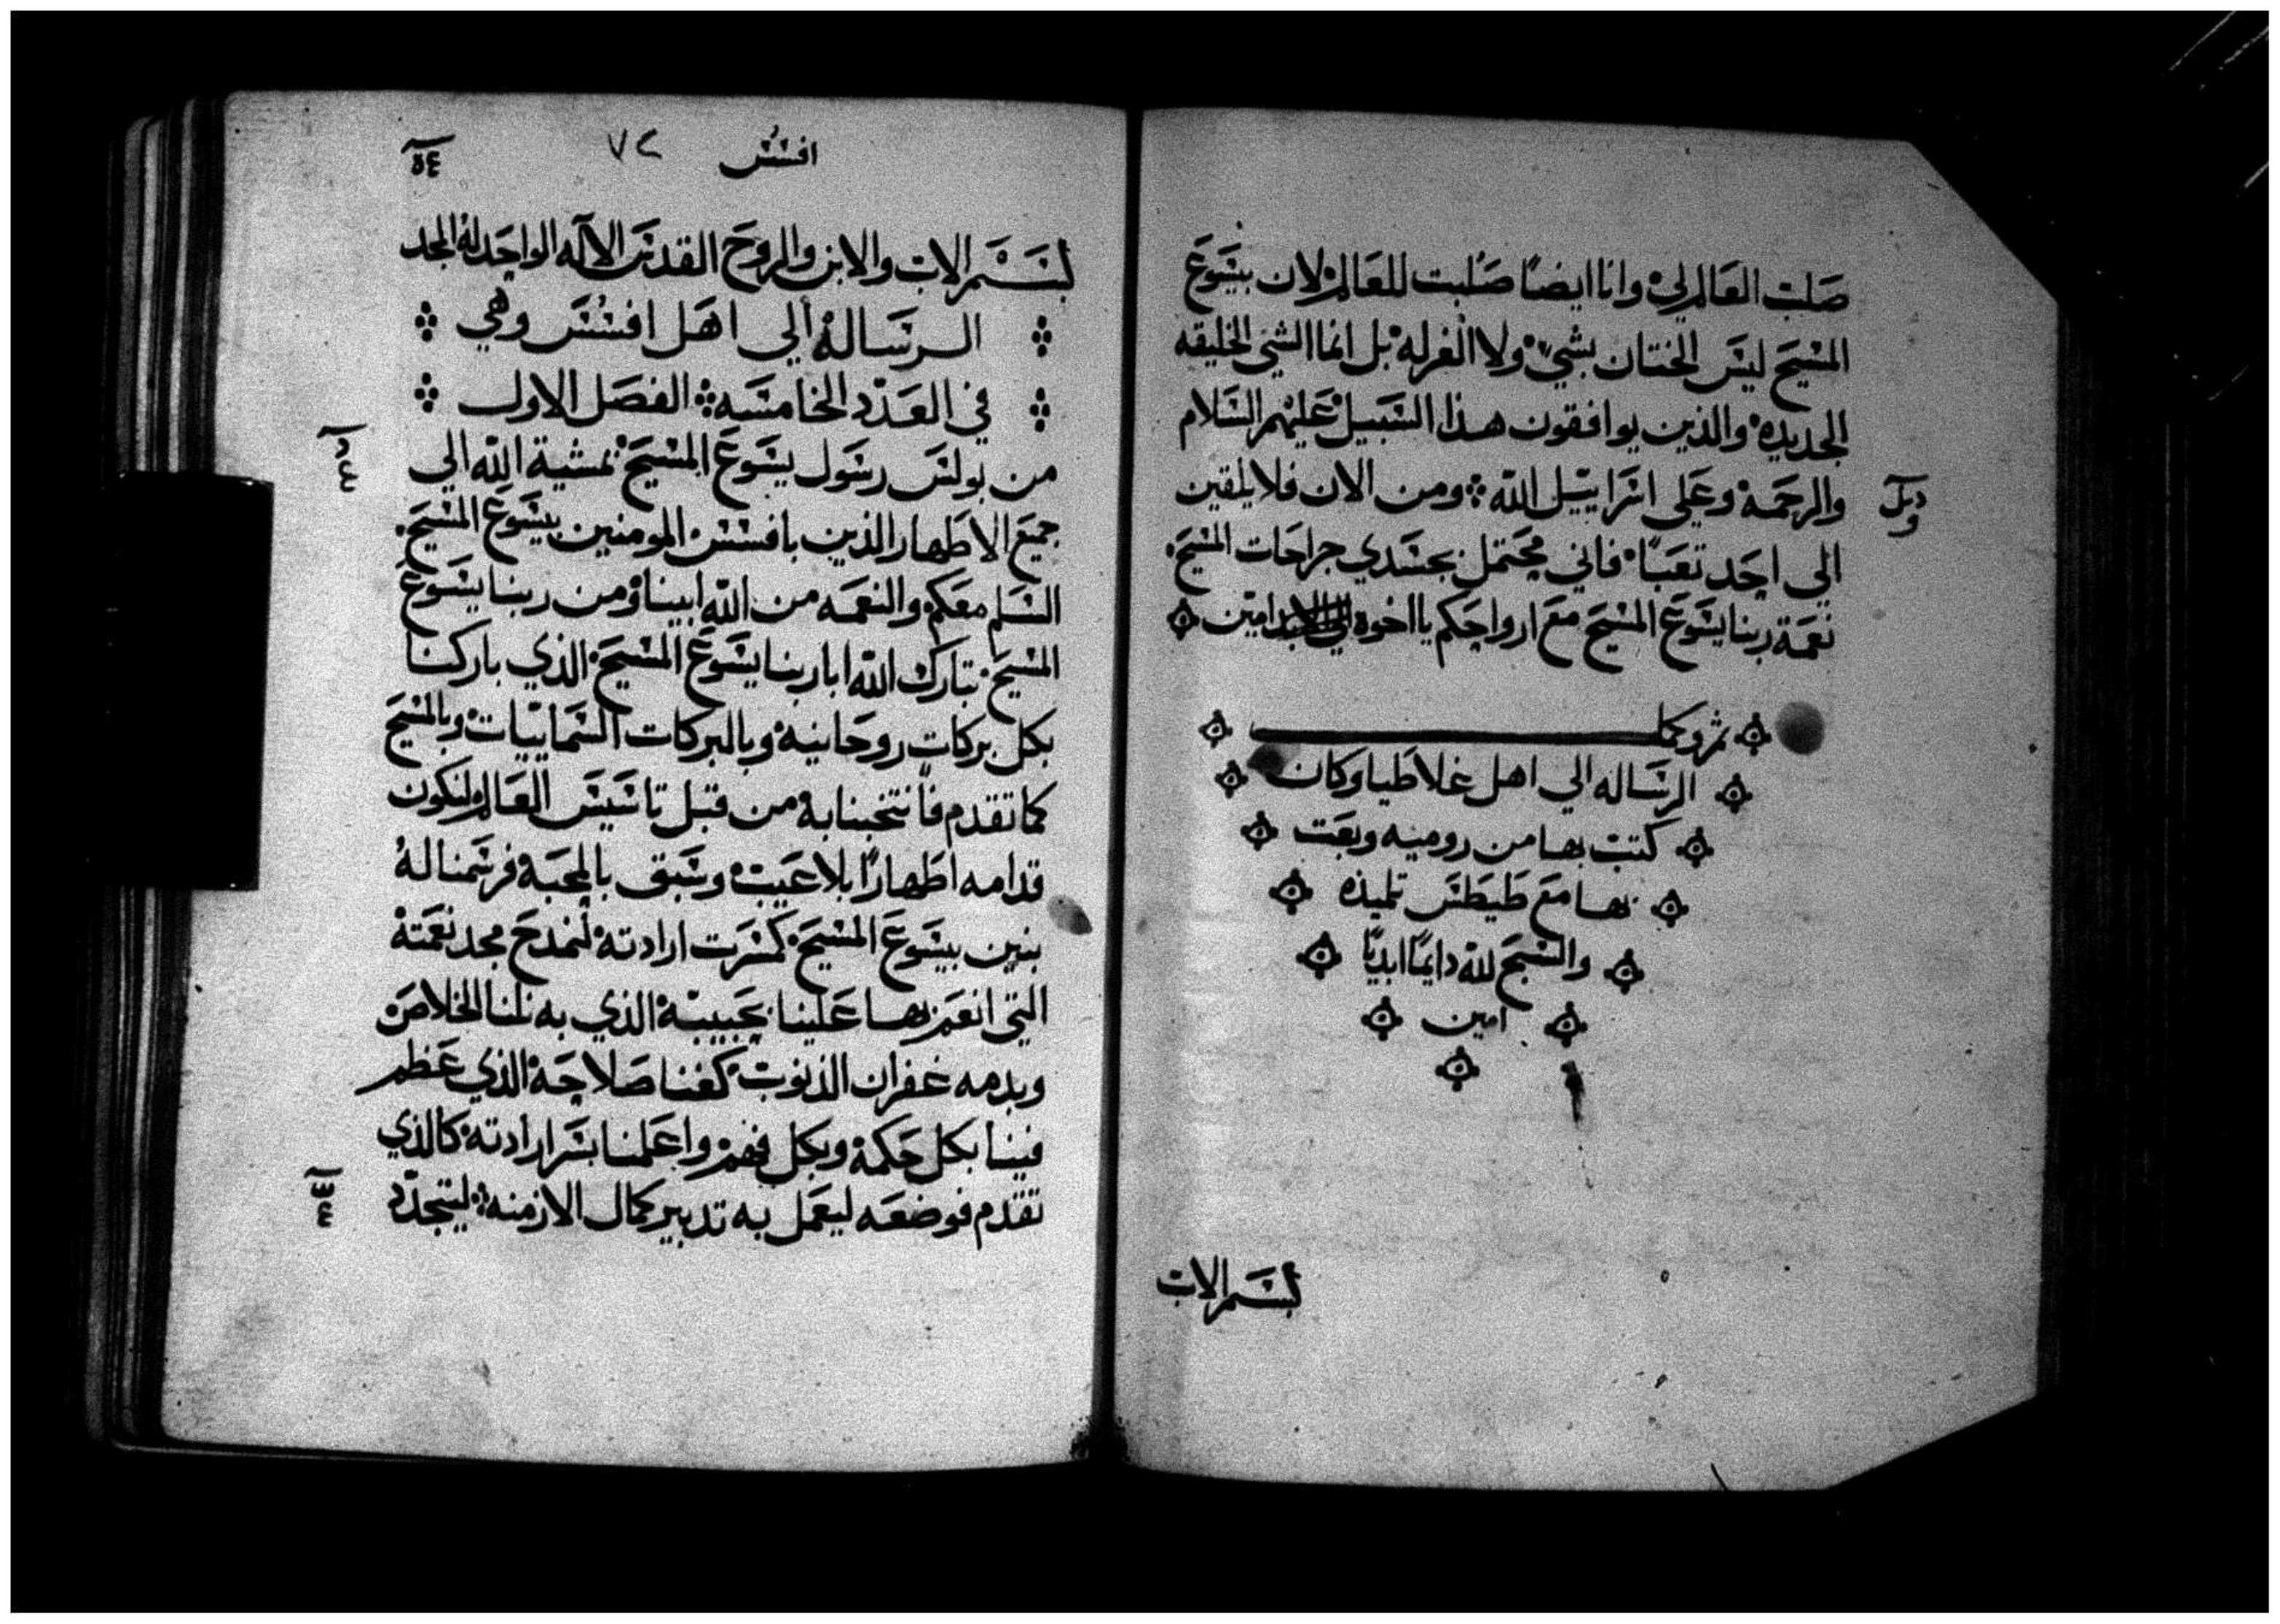 صلب العالم لي وانا ايضًا صُلبت للعالم لان بيسوع
المسيح ليس الختان بشيٍ ولا الغرله بل انما الشي الخليقه
الجديده والذين يوافقون هذا السبيل عليهم السلام
والرحمة وعلي اسراييل الله ومن الان فلا يلقين
الي احد تعبًا فاني محتمل بجسدي جراحات المسيح
نعمة ربنا يسوع المسيح مع ارواحكم يا اخوة امين
الرساله الي اهل غلاطيا وكان
كتب بها من روميه وبعت
بها مع طيطس تلميذه
والسبح لله دايمًا ابديًا
امين
بسم الاب
افسس ٧٢
بسم الاب والابن والروح القدس الاله الواحد له المجد
الرسالة الي اهل افسس وهي
في العدد الخامسه الفصل الاول
من بولس رسول يسوع المسيح بمشية الله الي
جميع الاطهار الذين بافسس المومنين بيسوع المسيح
السلم معكم والنعمه من الله ابينا ومن ربنا يسوع
المسيح تبارك الله ابا ربنا يسوع المسيح الذي باركنا
بكل بركات روحانية وبالبركات السماييات وبالمسيح
كما تقدم فانتخبنا به من قبل تاسيس العالم لنكون
قدامه اطهارًا بلا عيب وسبق بالمحبة فرسمنا له
بنين بيسوع المسيح كمسرت ارادته لنمدح مجد نعمته
التي انعم بها علينا بحبيبه الذي به نلنا الخلاص
وبدمه غفران الذنوب كغنا صلاحه الذي عظم
فينا بكل حكمة وبكل فهم واعلمنا بسر ارادته كالذي
تقدم فوضعه ليعمل به تدبير كمال الازمنه ليتجدد